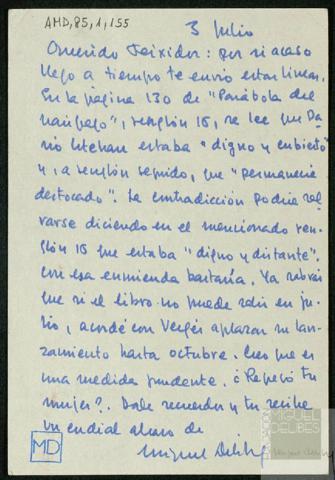 AMD,85,1,155
3 Julio
Querido Teixidor: por si acaso
llego a tiempo te envío estas líneas.
En la página 130 de "Parábola del
náufrago", renglón 15, se lee que Da-
río Esteban estaba "digno y cubierto"
y, a renglón seguido, que "permanecía
destocado". La contradicción podría sal-
varse diciendo en el mencionado ren-
glón 15 que estaba "digno y distante".
Con esa enmienda bastaría. Ya sabrás
que si el libro no puede salir en ju-
lio, acordé con Vergés aplazar su lan-
zamiento hasta octubre. Creo que es
una medida prudente. ¿Regresó tu
mujer?. Dale recuerdos y tu recibe
un cordial abrazo de
Miguel Delibes
MD
FUNDACIÓN
MIGUEL
DELIBES